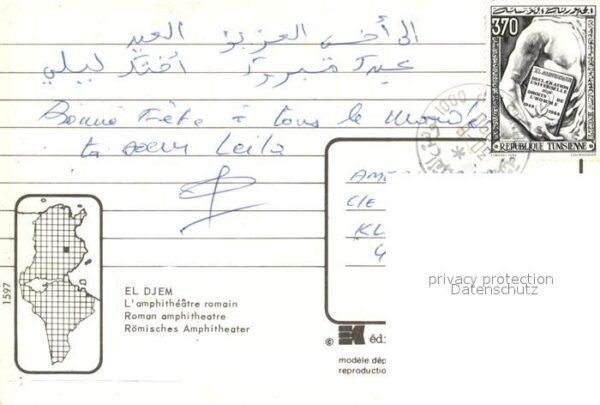 إلى أخي العزيز العيد
عيدك مبروك أختك ليلى
Bonne Fête à tous le monde
ta soeur Leila
370
EL DJEM
L'amphithéâtre romain
Roman amphitheatre
Römisches Amphitheater
1597
DECLARATION
UNIVERSELLE
DES
DROITS DE
L'HOMME
1948 1968
REPUBLIQUE TUNISIENNE
CIE
KL
privacy protection
Datenschutz
© EK éd
modèle dép
reproductio